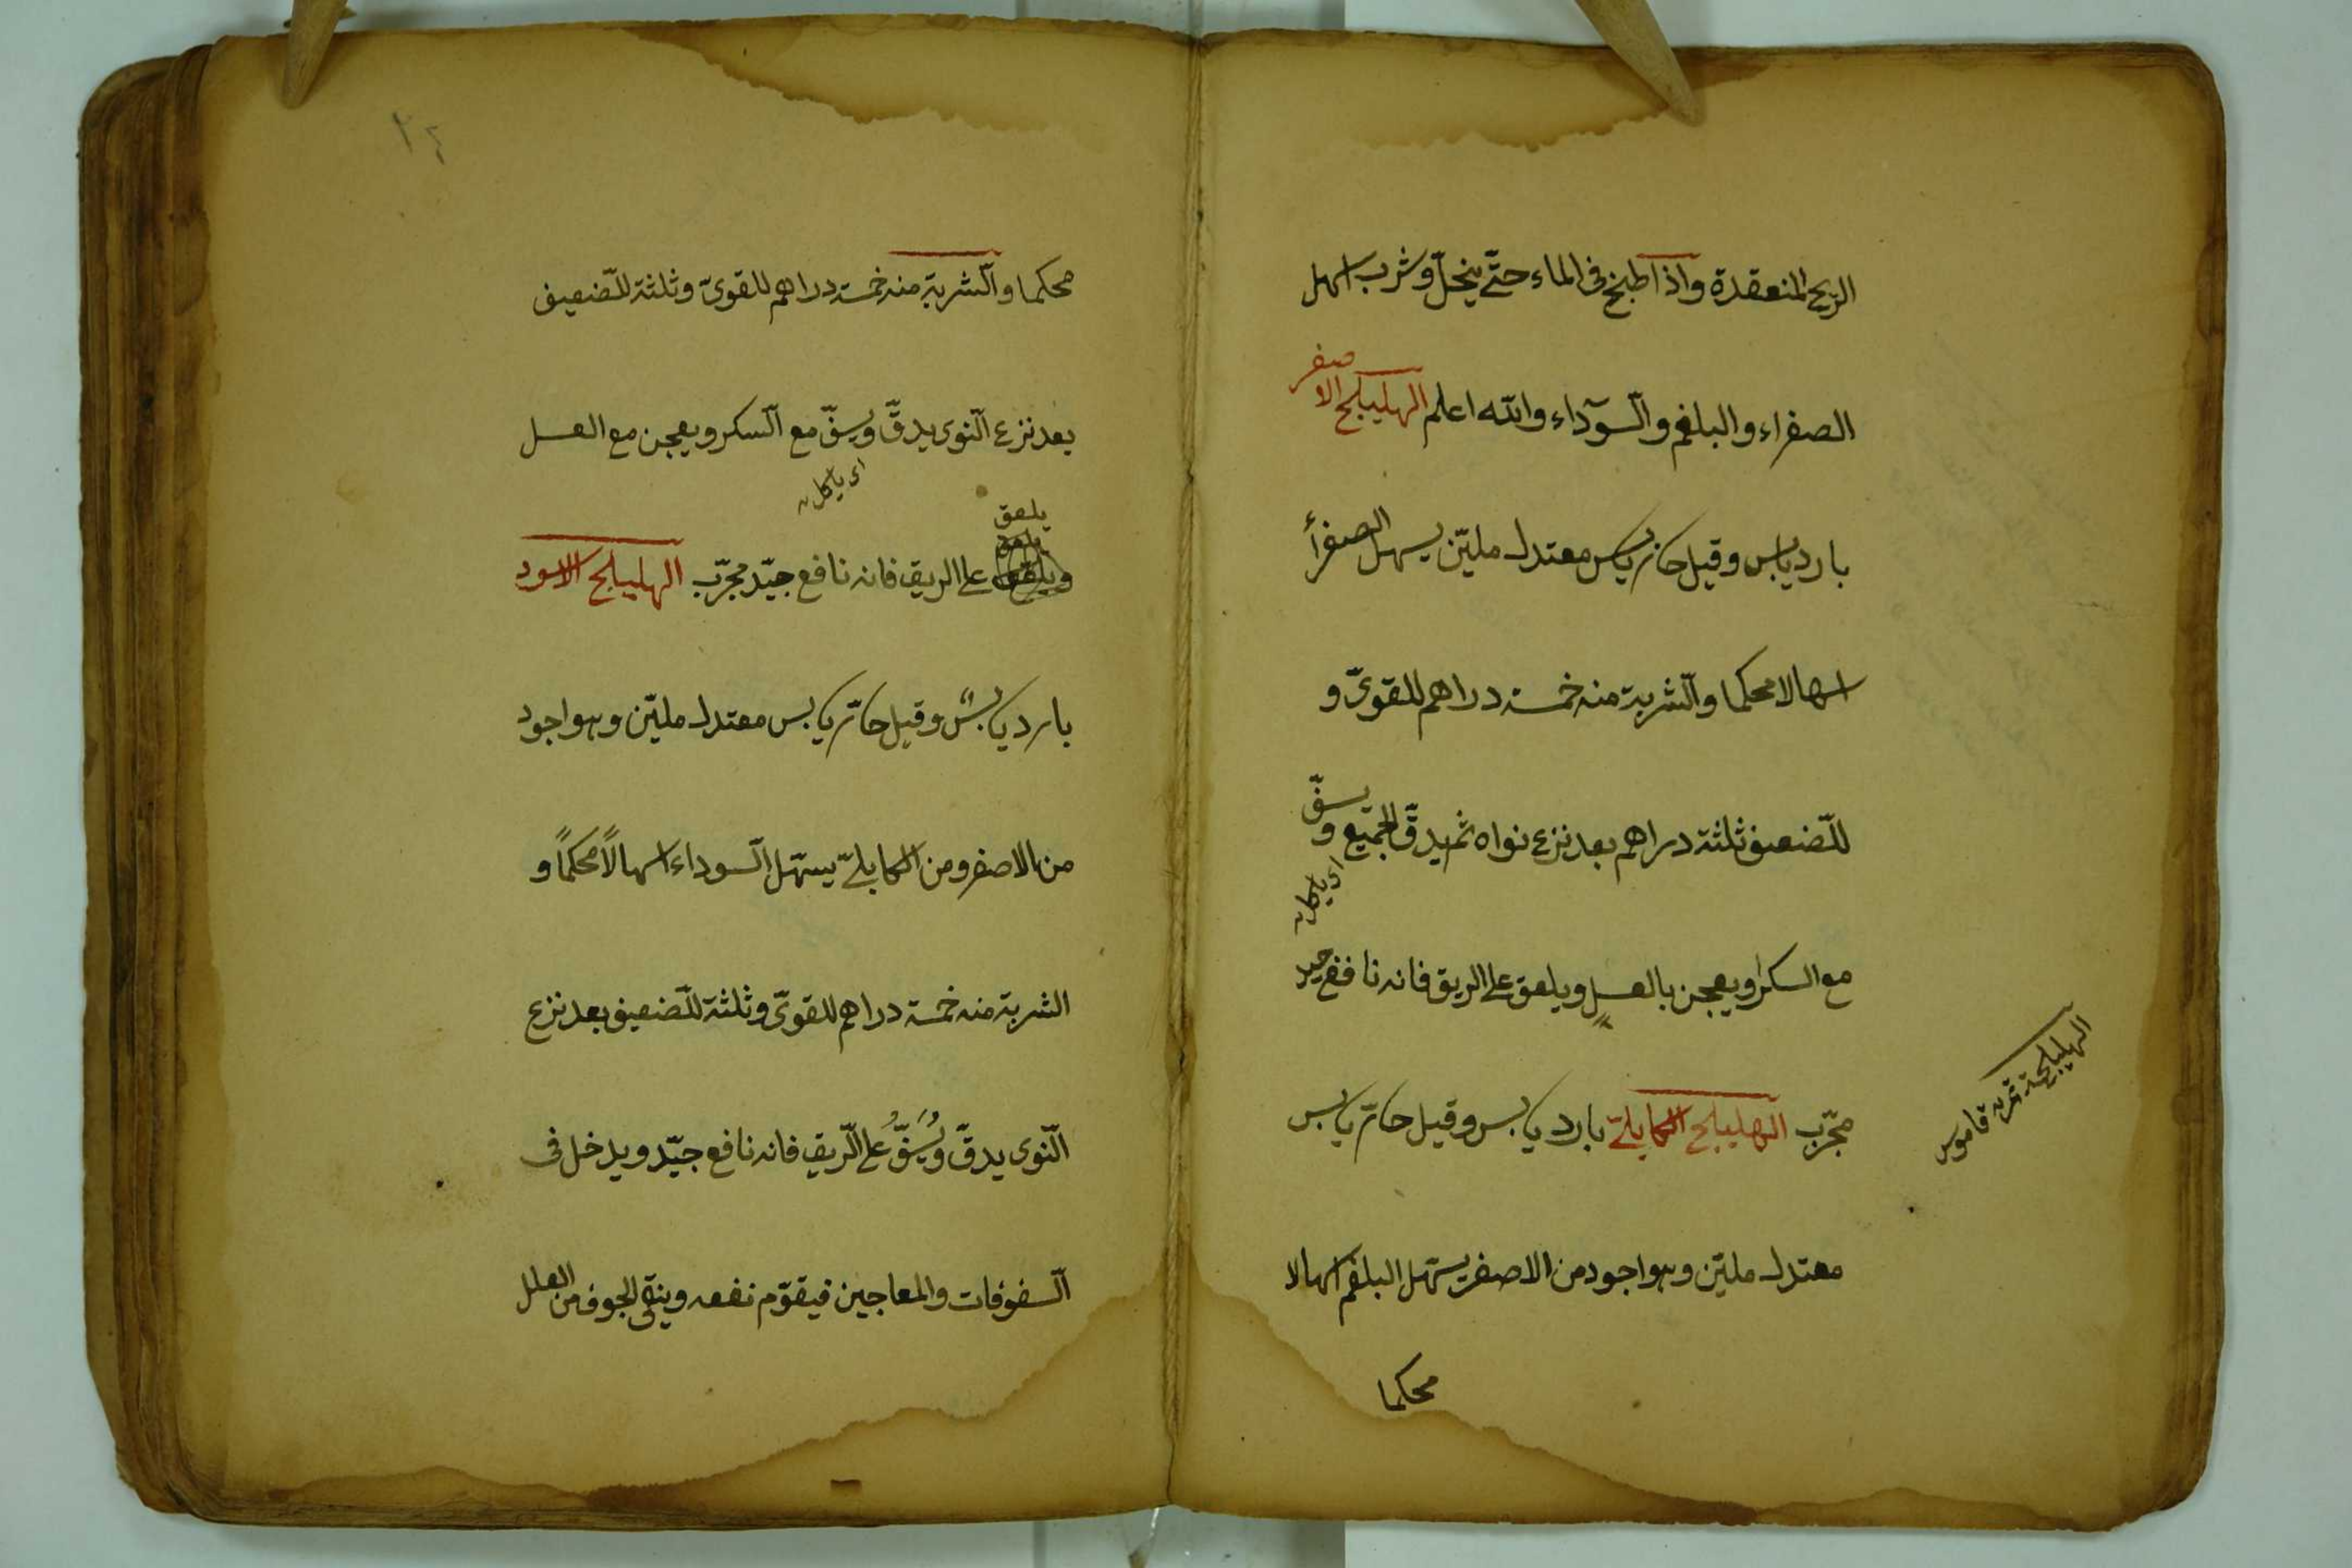 الريح المنعقدة واذا طبخ فى الماء حتّى ينحلّ وشرب اسهل
الصفراء والبلغم والسّوداء والله اعلم الهليلج الاصفر
بارد يابس وقيل حار يابس معتدل مليّن يسهل الصفرأ
اسهالا محكما والشّربة منه خمسة دراهم للقوىّ و
للضّعيف ثلثة دراهم بعد نزع نواه ثم يدقّ الجميع و يسفّ
اى ياكل
مع السكر او يعجن بالعسل ويلعق على الريق فانه نافع جيد
مجرّب الهليلج الكابلىّ بارد يابس وقيل حارّ يابس
الهليلجة ثمرته قاموس
معتدل مليّن وهو اجود من الاصفر يسهّل البلغم اسهالا
محكما
٢٤
محكما والشّربة منه خمسة دراهم للقوىّ وثلثة للضّعيف
بعد نزع النّوى يدقّ ويسفّ مع السّكر ويعجن مع العسل
اى ياكل
يلعق
على الريق فانه نافع جيّد مجرّب الهليلج الاسود
بارد يابس وقيل حارّ يابس معتدل مليّن وهو اجود
من الاصفر ومن الكابلىّ يسهّل السّوداء اسهالاً محكماً و
الشربة منه خمسة دراهم للقوىّ وثلثة للضّعيف بعد نزع
النّوى يدقّ ويُسَفُّ على الرّيق فانه نافع جيّد ويدخل فى
السّفوفات والمعاجين فيقوّم نفعه وينقى الجوف من العلل